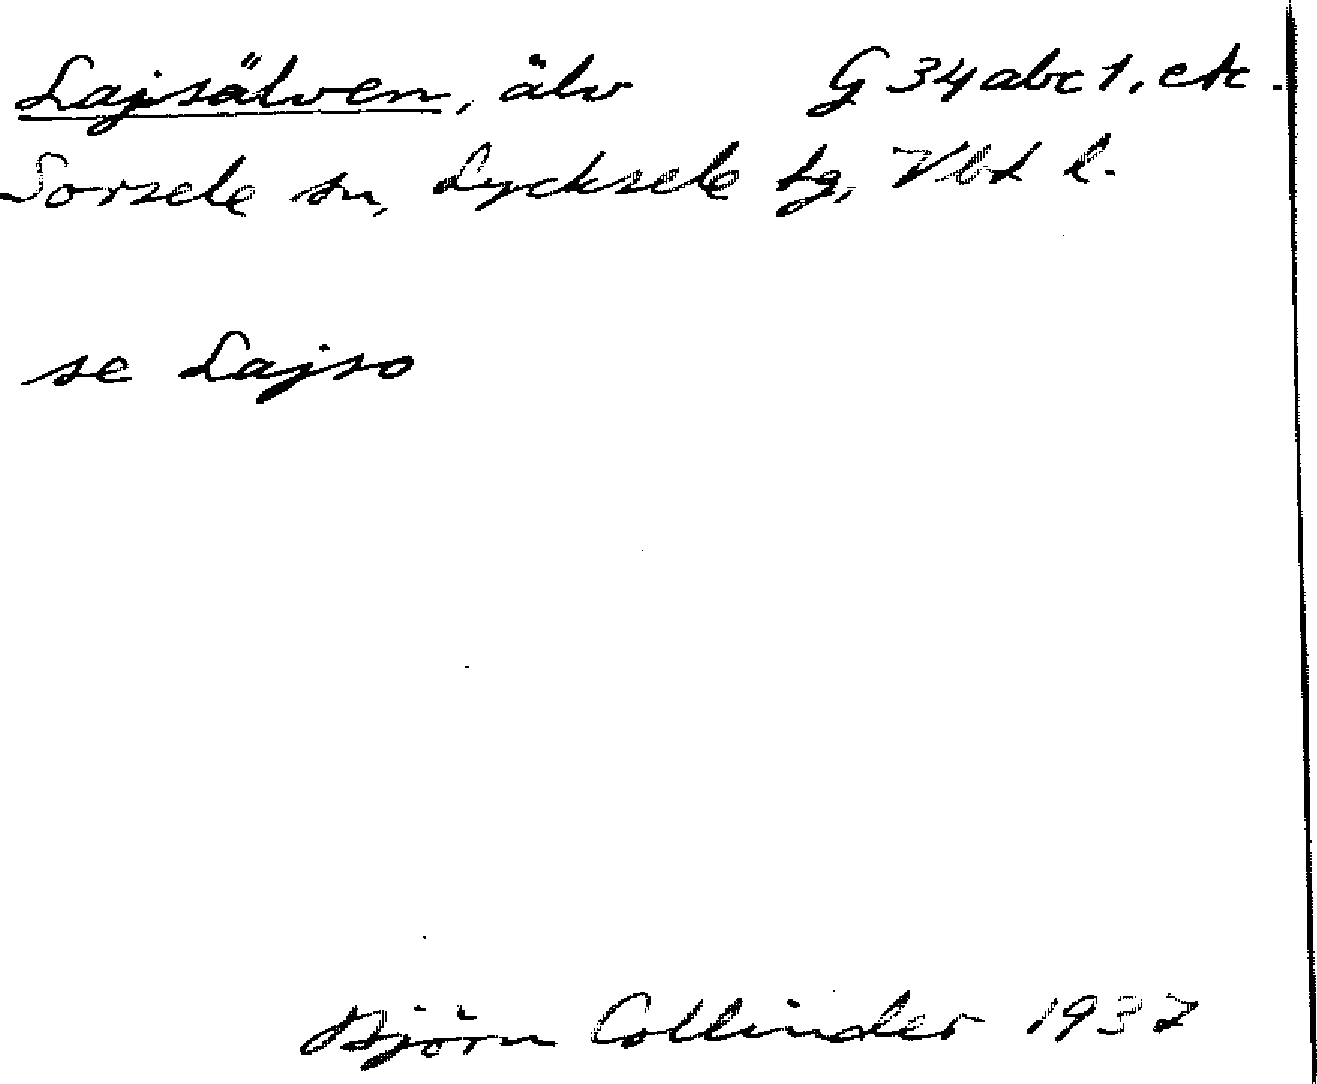 Lajsälven, älv G 34abc1, etc.
Sorsele sn, Lycksele lg, Vbd l.
se Lajso
Björn Collinder 1937